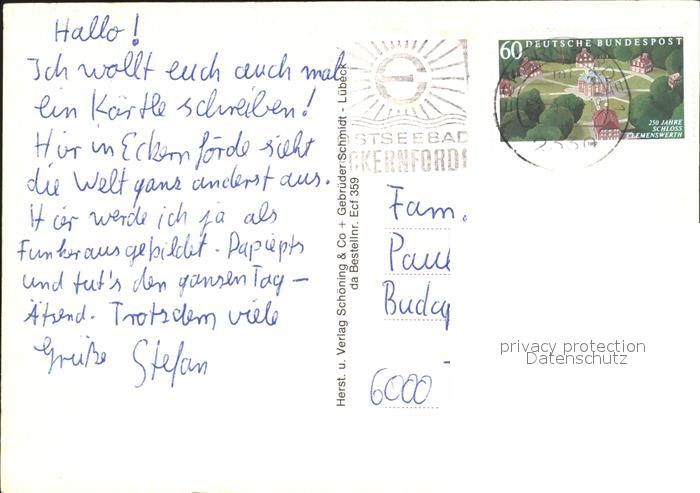 Hallo!
Ich wollt euch auch mal
ein Kärtle schreiben!
Hier in Eckernförde sieht
die Welt ganz anderst aus.
Hier werde ich ja als
Funker ausgebildet. Papiepts
und tut's den ganzen Tag –
Ätzend. Trotzdem viele
Grüße Stefan
Herst. u. Verlag Schöning & Co + Gebrüder Schmidt - Lübeck
da Bestellnr. Ecf 359
STSEEBAD
CKERNFÖRD
60 DEUTSCHE BUNDESPOST
250 JAHRE
SCHLOSS
CLEMENSWERTH
Fam.
Paul
6000
privacy protection
Datenschutz